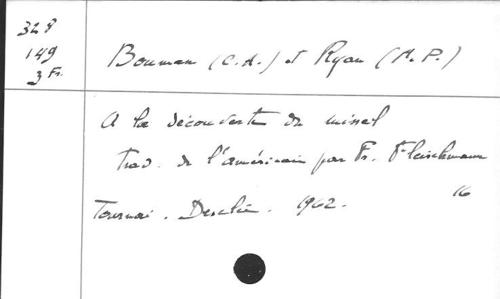 328
149
3 Fr.
Bouman (C.A.) et Ryan (M.P.)
A la découverte du missel
trad. de l'américain par Fr. Fleischmann
Tournai. Desclée. 1962.
16